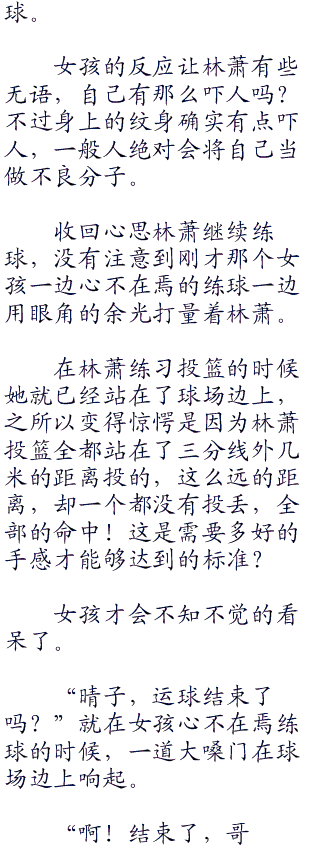 球。
女孩的反应让林萧有些
无语，自己有那么吓人吗？
不过身上的纹身确实有点吓
人，一般人绝对会将自己当
做不良分子。
收回心思林萧继续练
球，没有注意到刚才那个女
孩一边心不在焉的练球一边
用眼角的余光打量着林萧。
在林萧练习投篮的时候
她就已经站在了球场边上，
之所以变得惊愕是因为林萧
投篮全都站在了三分线外几
米的距离投的，这么远的距
离，却一个都没有投丢，全
部的命中！这是需要多好的
手感才能够达到的标准？
女孩才会不知不觉的看
呆了。
“晴子，运球结束了
吗？”就在女孩心不在焉练
球的时候，一道大嗓门在球
场边上响起。
“啊！结束了，哥